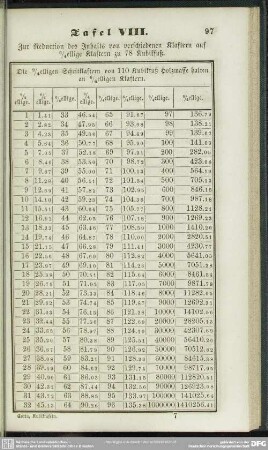 Tafel VIII. 97
Zur Reduction des Inhalts von verschiedenen Klaftern auf
6/4ellige Klaftern zu 78 Kubikfuß.
ellige. ellige. ellige. ellige. ellige. ellige. ellige. ellige.
1 1,41 33 46,54 65 91,67 97 136,79
2 2,82 34 47,95 66 93,08 98 138,21
3 4,23 35 49,36 67 94,49 99 139,62
4 5,64 36 50,77 68 95,90 100 141,03
5 7,05 37 52,18 69 97,31 200 282,05
6 8,46 38 53,59 70 98,72 300 423,08
7 9,87 39 55,00 71 100,13 400 564,10
8 11,28 40 56,41 72 101,54 500 705,13
9 12,69 41 57,82 73 102,95 600 846,15
10 14,10 42 59,23 74 104,36 700 987,18
11 15,51 43 60,64 75 105,77 800 1128,21
12 16,92 44 62,05 76 107,18 900 1269,23
13 18,33 45 63,46 77 108,59 1000 1410,26
14 19,74 46 64,87 78 110,00 2000 2820,51
15 21,15 47 66,28 79 111,41 3000 4230,77
16 22,56 48 67,69 80 112,82 4000 5641,03
17 23,97 49 69,10 81 114,23 5000 7051,28
18 25,38 50 70,51 82 115,64 6000 8461,54
19 26,79 51 71,92 83 117,05 7000 9871,79
20 28,21 52 73,33 84 118,46 8000 11282,05
21 29,62 53 74,74 85 119,87 9000 12692,31
22 31,03 54 76,15 86 121,28 10000 14102,56
23 32,44 55 77,56 87 122,69 20000 28205,13
24 33,85 56 78,97 88 124,10 30000 42307,69
25 35,26 57 80,38 89 125,51 40000 56410,26
26 36,67 58 81,79 90 126,92 50000 70512,82
27 38,08 59 83,21 91 128,33
28 39,49 60 84,62 92 129,74 70000 98717,95
29 40,90 61 86,03 93 131,15 80000
30 42,31 62 87,44 94 132,56 90000 126923,08
31 43,72 63 88,85 95 133,97 100000 141025,64
32 45,13 64 90,26 96 135,38 1000000 1410256,41
7
DFG